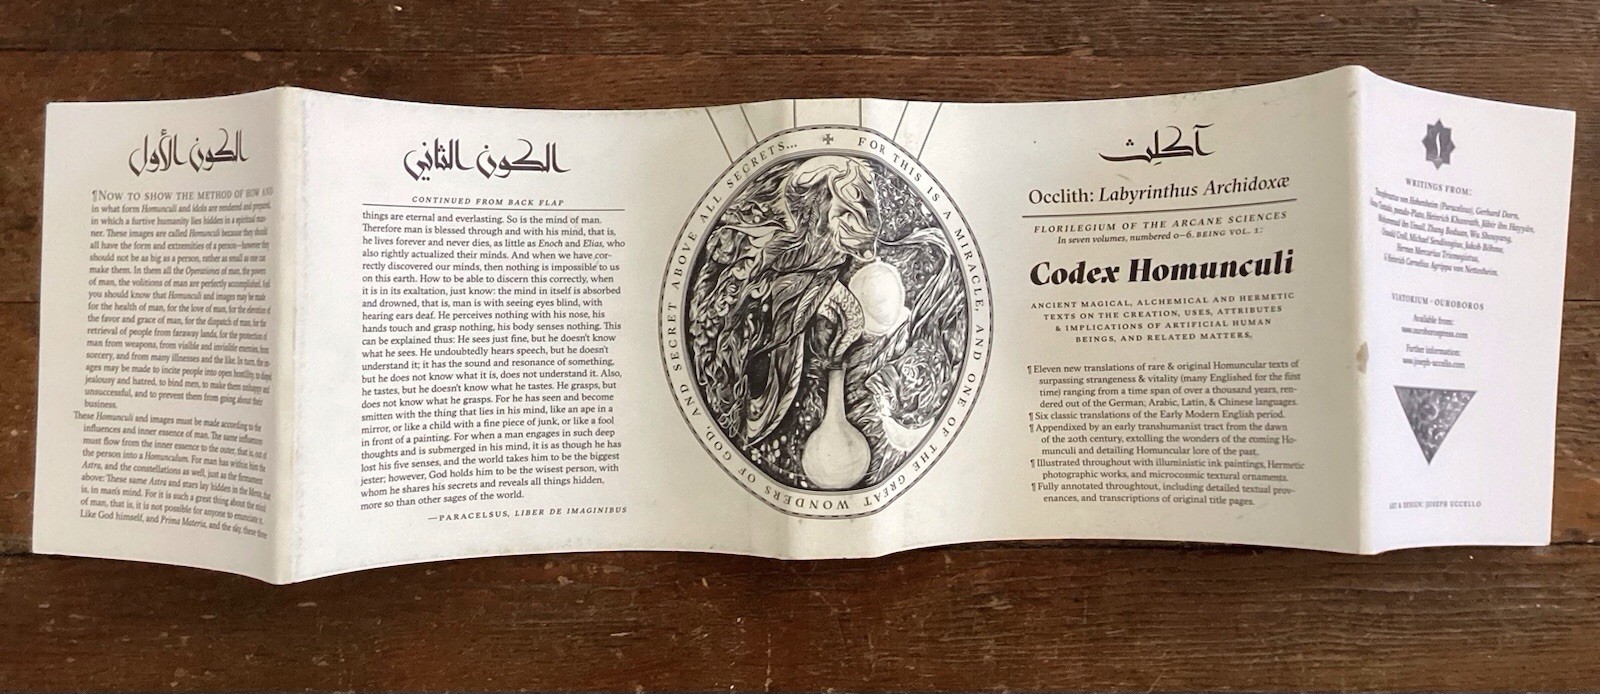 الكون الأول
¶NOW TO SHOW THE METHOD OF HOW AND
in what form Homunculi and idola are rendered and prepared,
in which a furtive humanity lies hidden in a spiritual man-
ner. These images are called Homunculi because they should
all have the form and extremities of a person—however they
should not be as big as a person, rather as small as one can
make them. In them all the Operationes of man, the powers
of man, the volitions of man are perfectly accomplished. And
you should know that Homunculi and images may be made
for the health of man, for the love of man, for the elevation of
the favor and grace of man, for the dispatch of man, for the
retrieval of people from faraway lands, for the protection of
man from weapons, from visible and invisible enemies, from
sorcery, and from many illnesses and the like. In turn, the im-
ages may be made to incite people into open hostility, to dispel
jealousy and hatred, to bind men, to make them unhappy and
unsuccessful, and to prevent them from going about their
business.
These Homunculi and images must be made according to the
influences and inner essence of man. The same influences
must flow from the inner essence to the outer, that is, out of
the person into a Homunculum. For man has within him the
Astra, and the constellations as well, just as the firmament
above: These same Astra and stars lay hidden in the Mens, that
is, in man's mind. For it is such a great thing about the mind
of man, that is, it is not possible for anyone to enunciate it.
Like God himself, and Prima Materia, and the sky, these three
الكون الثاني
CONTINUED FROM BACK FLAP
things are eternal and everlasting. So is the mind of man.
Therefore man is blessed through and with his mind, that is,
he lives forever and never dies, as little as Enoch and Elias, who
also rightly actualized their minds. And when we have cor-
rectly discovered our minds, then nothing is impossible to us
on this earth. How to be able to discern this correctly, when
it is in its exaltation, just know: the mind in itself is absorbed
and drowned, that is, man is with seeing eyes blind, with
hearing ears deaf. He perceives nothing with his nose, his
hands touch and grasp nothing, his body senses nothing. This
can be explained thus: He sees just fine, but he doesn't know
what he sees. He undoubtedly hears speech, but he doesn't
understand it; it has the sound and resonance of something,
but he does not know what it is, does not understand it. Also,
he tastes, but he doesn't know what he tastes. He grasps, but
does not know what he grasps. For he has seen and become
smitten with the thing that lies in his mind, like an ape in a
mirror, or like a child with a fine piece of junk, or like a fool
in front of a painting. For when a man engages in such deep
thoughts and is submerged in his mind, it is as though he has
lost his five senses, and the world takes him to be the biggest
jester; however, God holds him to be the wisest person, with
whom he shares his secrets and reveals all things hidden,
more so than other sages of the world.
—PARACELSUS, LIBER DE IMAGINIBUS
✠ FOR THIS IS A MIRACLE, AND ONE OF THE GREAT WONDERS OF GOD, AND SECRET ABOVE ALL SECRETS...
آكلث
Occlith: Labyrinthus Archidoxæ
FLORILEGIUM OF THE ARCANE SCIENCES
In seven volumes, numbered 0–6. BEING VOL. 1:
Codex Homunculi
ANCIENT MAGICAL, ALCHEMICAL AND HERMETIC
TEXTS ON THE CREATION, USES, ATTRIBUTES
& IMPLICATIONS OF ARTIFICIAL HUMAN
BEINGS, AND RELATED MATTERS,
¶ Eleven new translations of rare & original Homuncular texts of
surpassing strangeness & vitality (many Englished for the first
time) ranging from a time span of over a thousand years, ren-
dered out of the German, Arabic, Latin, & Chinese languages.
¶ Six classic translations of the Early Modern English period.
¶ Appendixed by an early transhumanist tract from the dawn
of the 20th century, extolling the wonders of the coming Ho-
munculi and detailing Homuncular lore of the past.
¶ Illustrated throughout with illuministic ink paintings, Hermetic
photographic works, and microcosmic textural ornaments.
¶ Fully annotated throughtout, including detailed textual prov-
enances, and transcriptions of original title pages.
١
WRITINGS FROM:
Theophrastus von Hohenheim (Paracelsus), Gerhard Dorn,
pseudo-Plato, Heinrich Khunrath, Jābir ibn Hayyān,
Muhammad ibn Umail, Zhang Boduan, Wu Shouyang,
Oswald Croll, Michael Sendivogius, Jakob Böhme,
Hermes Mercurius Trismegistus,
& Heinrich Cornelius Agrippa von Nettesheim.
VIATORIUM · OUROBOROS
Available from:
www.ouroborospress.com
Further information:
www.joseph-uccello.com
ART & DESIGN: JOSEPH UCCELLO